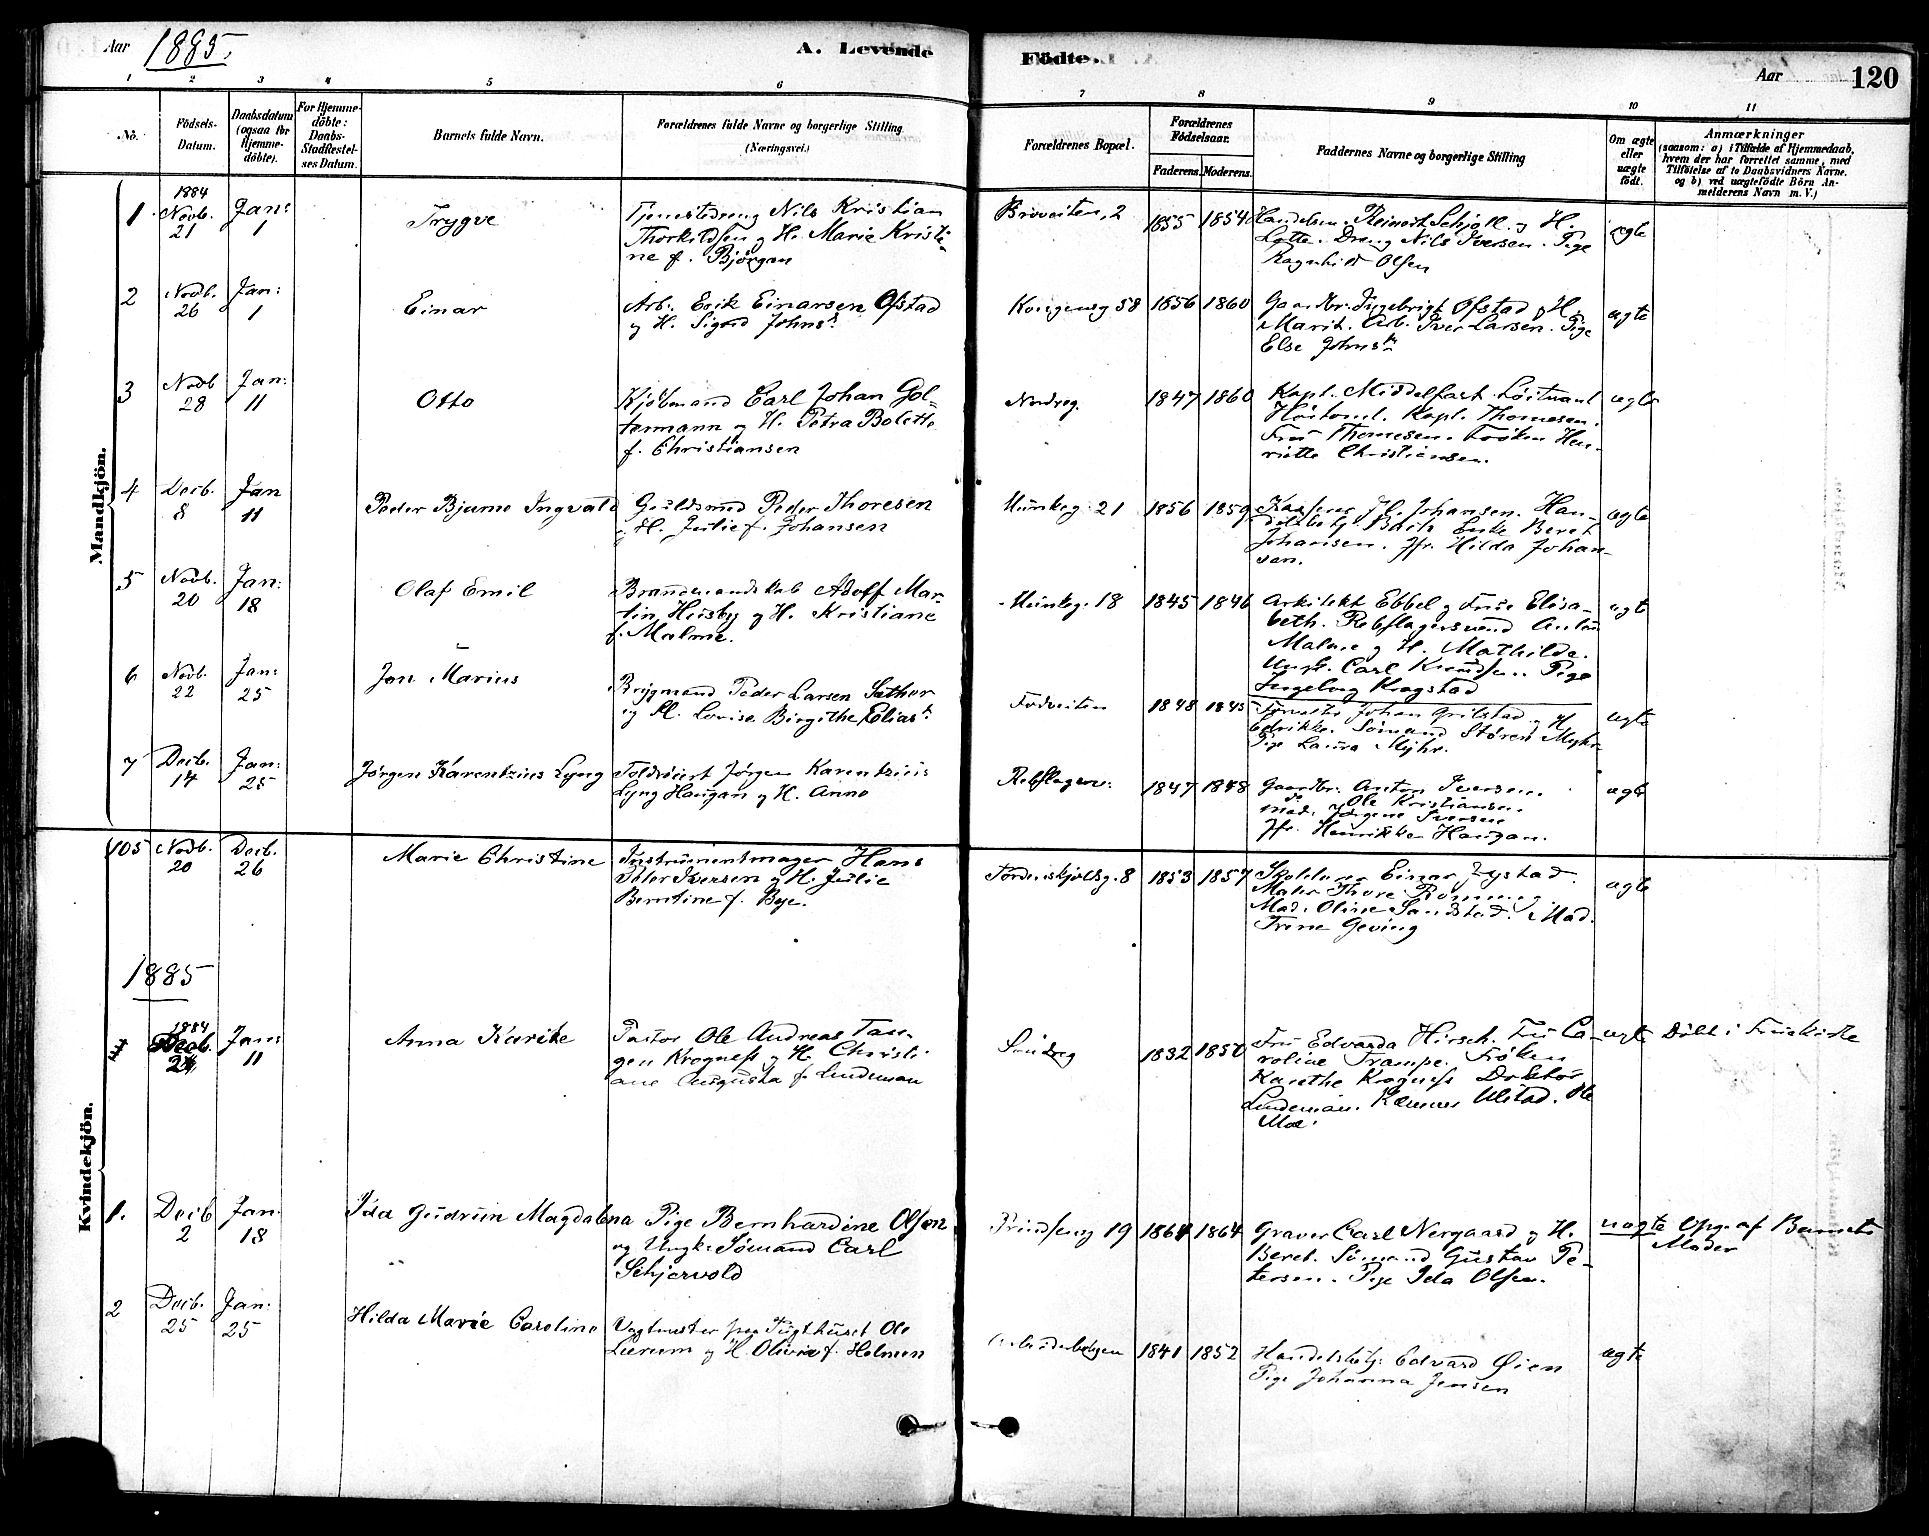 Aar 1885.
A. Levende
Födte.
Aar
120
1 2 3 4 5 6 7 8 9 10 11
No.
Födsels-
Datum.
Daabsdatum
(ogsaa for
Hjemme-
döbte).
For Hjemme-
döbte:
Daabs-
Stadfæstel-
ses Datum.
Barnets fulde Navn.
Forældrenes fulde Navne og borgerlige Stilling
(Næringsvei.)
Forældrenes Bopæl.
Forældrenes
Födselsaar.
Faderens. Moderens.
Faddernes Navne og borgerlige Stilling
Om ægte
eller
uægte
født.
Anmærkninger
(saasom: a) i Tilfælde af Hjemmedaab,
hvem der har forrettet samme, med
Tilføielse af to Daabsvidners Navne.
og b) ved uægtefödte Börn An-
melderens Navn m. V.)
Mandkjön.
1884
1. Novb. 21
Jan: 1
Trygve
Tjenestedreng Nils Kristian
Thorkildsen og H. Marie Kristi-
ne f. Bjørgan
1855 1854
Reinert Schjøll og H.
Lotte. Dreng Nils Iversen. Pige
Ragnhild Olsen
ægte
2 Novb. 26
Jan: 1
Einar
Arb. Erik Einarsen Ofstad
og H. Sigrid Johnsd.
Kongensg 58
1856 1860
Gaardbr. Ingebrigt Ofstad og H.
Marit. Arb. Iver Larsen. Pige
Else Johnsd.
ægte
3 Novb 28
Jan: 11
Otto
Kjøbmand Carl Johan Gol-
termann og H. Petra Bolette
f. Christiansen
Nordreg.
1847 1860
Kapt. Middelfart. Løitnant
Kapt. Thomesen.
Fru Thomesen. Frøken Hen-
riette Christiansen.
ægte
4 Decb. 8
Jan 11
Peder Bjarne Ingvald
Guldsmed Peder Thoresen
og H. Julie f. Johansen
Munkeg. 21
1856 1859
Johansen. Han-
Enke Beret
Johansen. Jfr. Hilda Johan-
sen.
ægte
5 Novb. 20
Jan: 18
Olaf Emil
Adolf Mar-
tin Husby og H. Kristiane
f. Malme.
Munkeg. 18
1845 1846
Arkitekt Ebbel og Frue Elisa-
beth. Rebslagersvend Anton
Malme og H. Mathilde.
Ungk. Carl Knudsen. Pige
Ingeborg Kragstad
ægte
6 Novb. 22
Jan: 25
Jon Marius
Brygmand Peder Larsen Sæther
og H. Lovise Birgithe Eliasd.
Fodveiten
1848 1845
Johan Grilstad og H.
Edrikke. Sømand Støren Myhr.
Pige Laura Myhr.
ægte
7 Decb. 14
Jan: 25
Jørgen Karentzius Lyng
Toldroiert Jørgen Karentzius
Lyng Haugan og H. Anne
Rebslagerv:
1847 1848
Gaardbr. Anton Iversen.
do Ole Kristiansen.
Mad. Jørgine Iversen
Jfr. Henrikke Haugan.
ægte
105 Novb. 20
Decb. 26
Marie Christine
Instrumentmager Hans
Peter Iversen og H. Julie
Berntine f. Bye.
Tordenskjoldsg. 8
1853 1857
Einar Rystad.
Maler Thore Rønning.
Mad. Oline Sandstad. Mad.
Trine Geving
ægte
1885
Kvindekjön.
1884
Decb. 24
Jan: 11
Anna Karite
Pastor Ole Andreas Tan-
gen Krogness og H. Christi-
ane Augusta f. Lindeman
Søndreg
1832 1850
Fru Edvarda Hirsch. Fru Ca-
roline Trampe. Frøken
Karethe Krogness Doktor
Lindeman. Kæmner Ulstad. Ole
Moe.
ægte
Døbt i Fruekirke
1. Decb 2
Jan. 18
Ida Gudrun Magdalena
Pige Bernhardine Olsen
og Ungk. Sømand Carl
Schjervold
Prindsensg 19
1864 1864
Graver Carl Nergaard og H.
Beret. Sømand Gustav Pe-
tersen. Pige Ida Olsen.
uægte
Opg. af Barnets
Moder
2 Decb. 25
Jan: 25
Hilda Marie Caroline
Vagtmester paa Tugthuset Ole
Lærum og H. Olivia f. Holmen
1841 1852
Handelsbetj: Edvard Øien
Pige Johanna Jensen
ægte